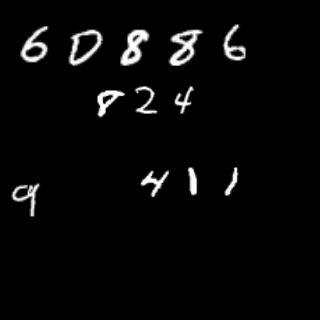 60886
824
9 411